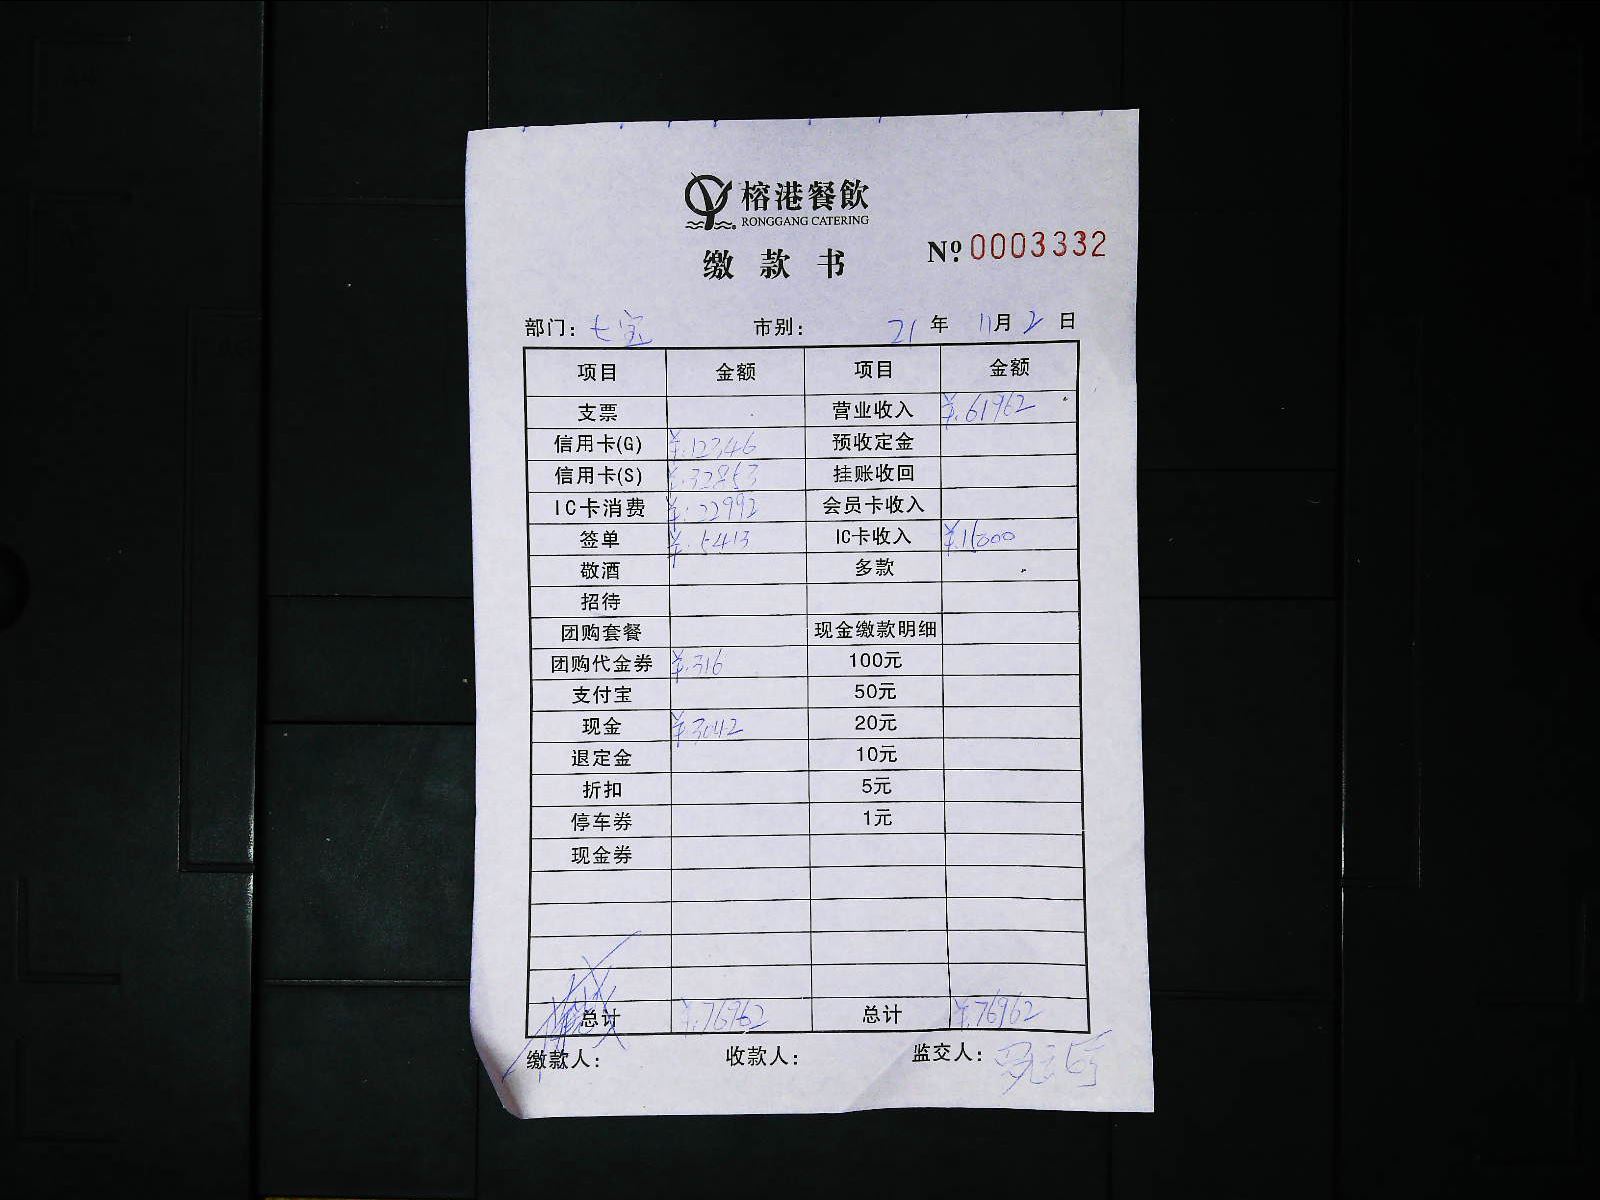 榕港餐飲
RONGGANG CATERING
缴款书 Nº 0003332
部门: 七宝 市别: 21 年 11 月 2 日
项目 金额 项目 金额
支票 营业收入 ¥.61962
信用卡(G) ¥.12346 预收定金
信用卡(S) ¥.32853 挂账收回
IC卡消费 ¥.22992 会员卡收入
签单 ¥.5413 IC卡收入 ¥.15000
敬酒 多款
招待
团购套餐 现金缴款明细
团购代金券 ¥.316 100元
支付宝 50元
现金 ¥.3042 20元
退定金 10元
折扣 5元
停车券 1元
现金券
总计 ¥.76962 总计 ¥.76962
缴款人: 收款人: 监交人: